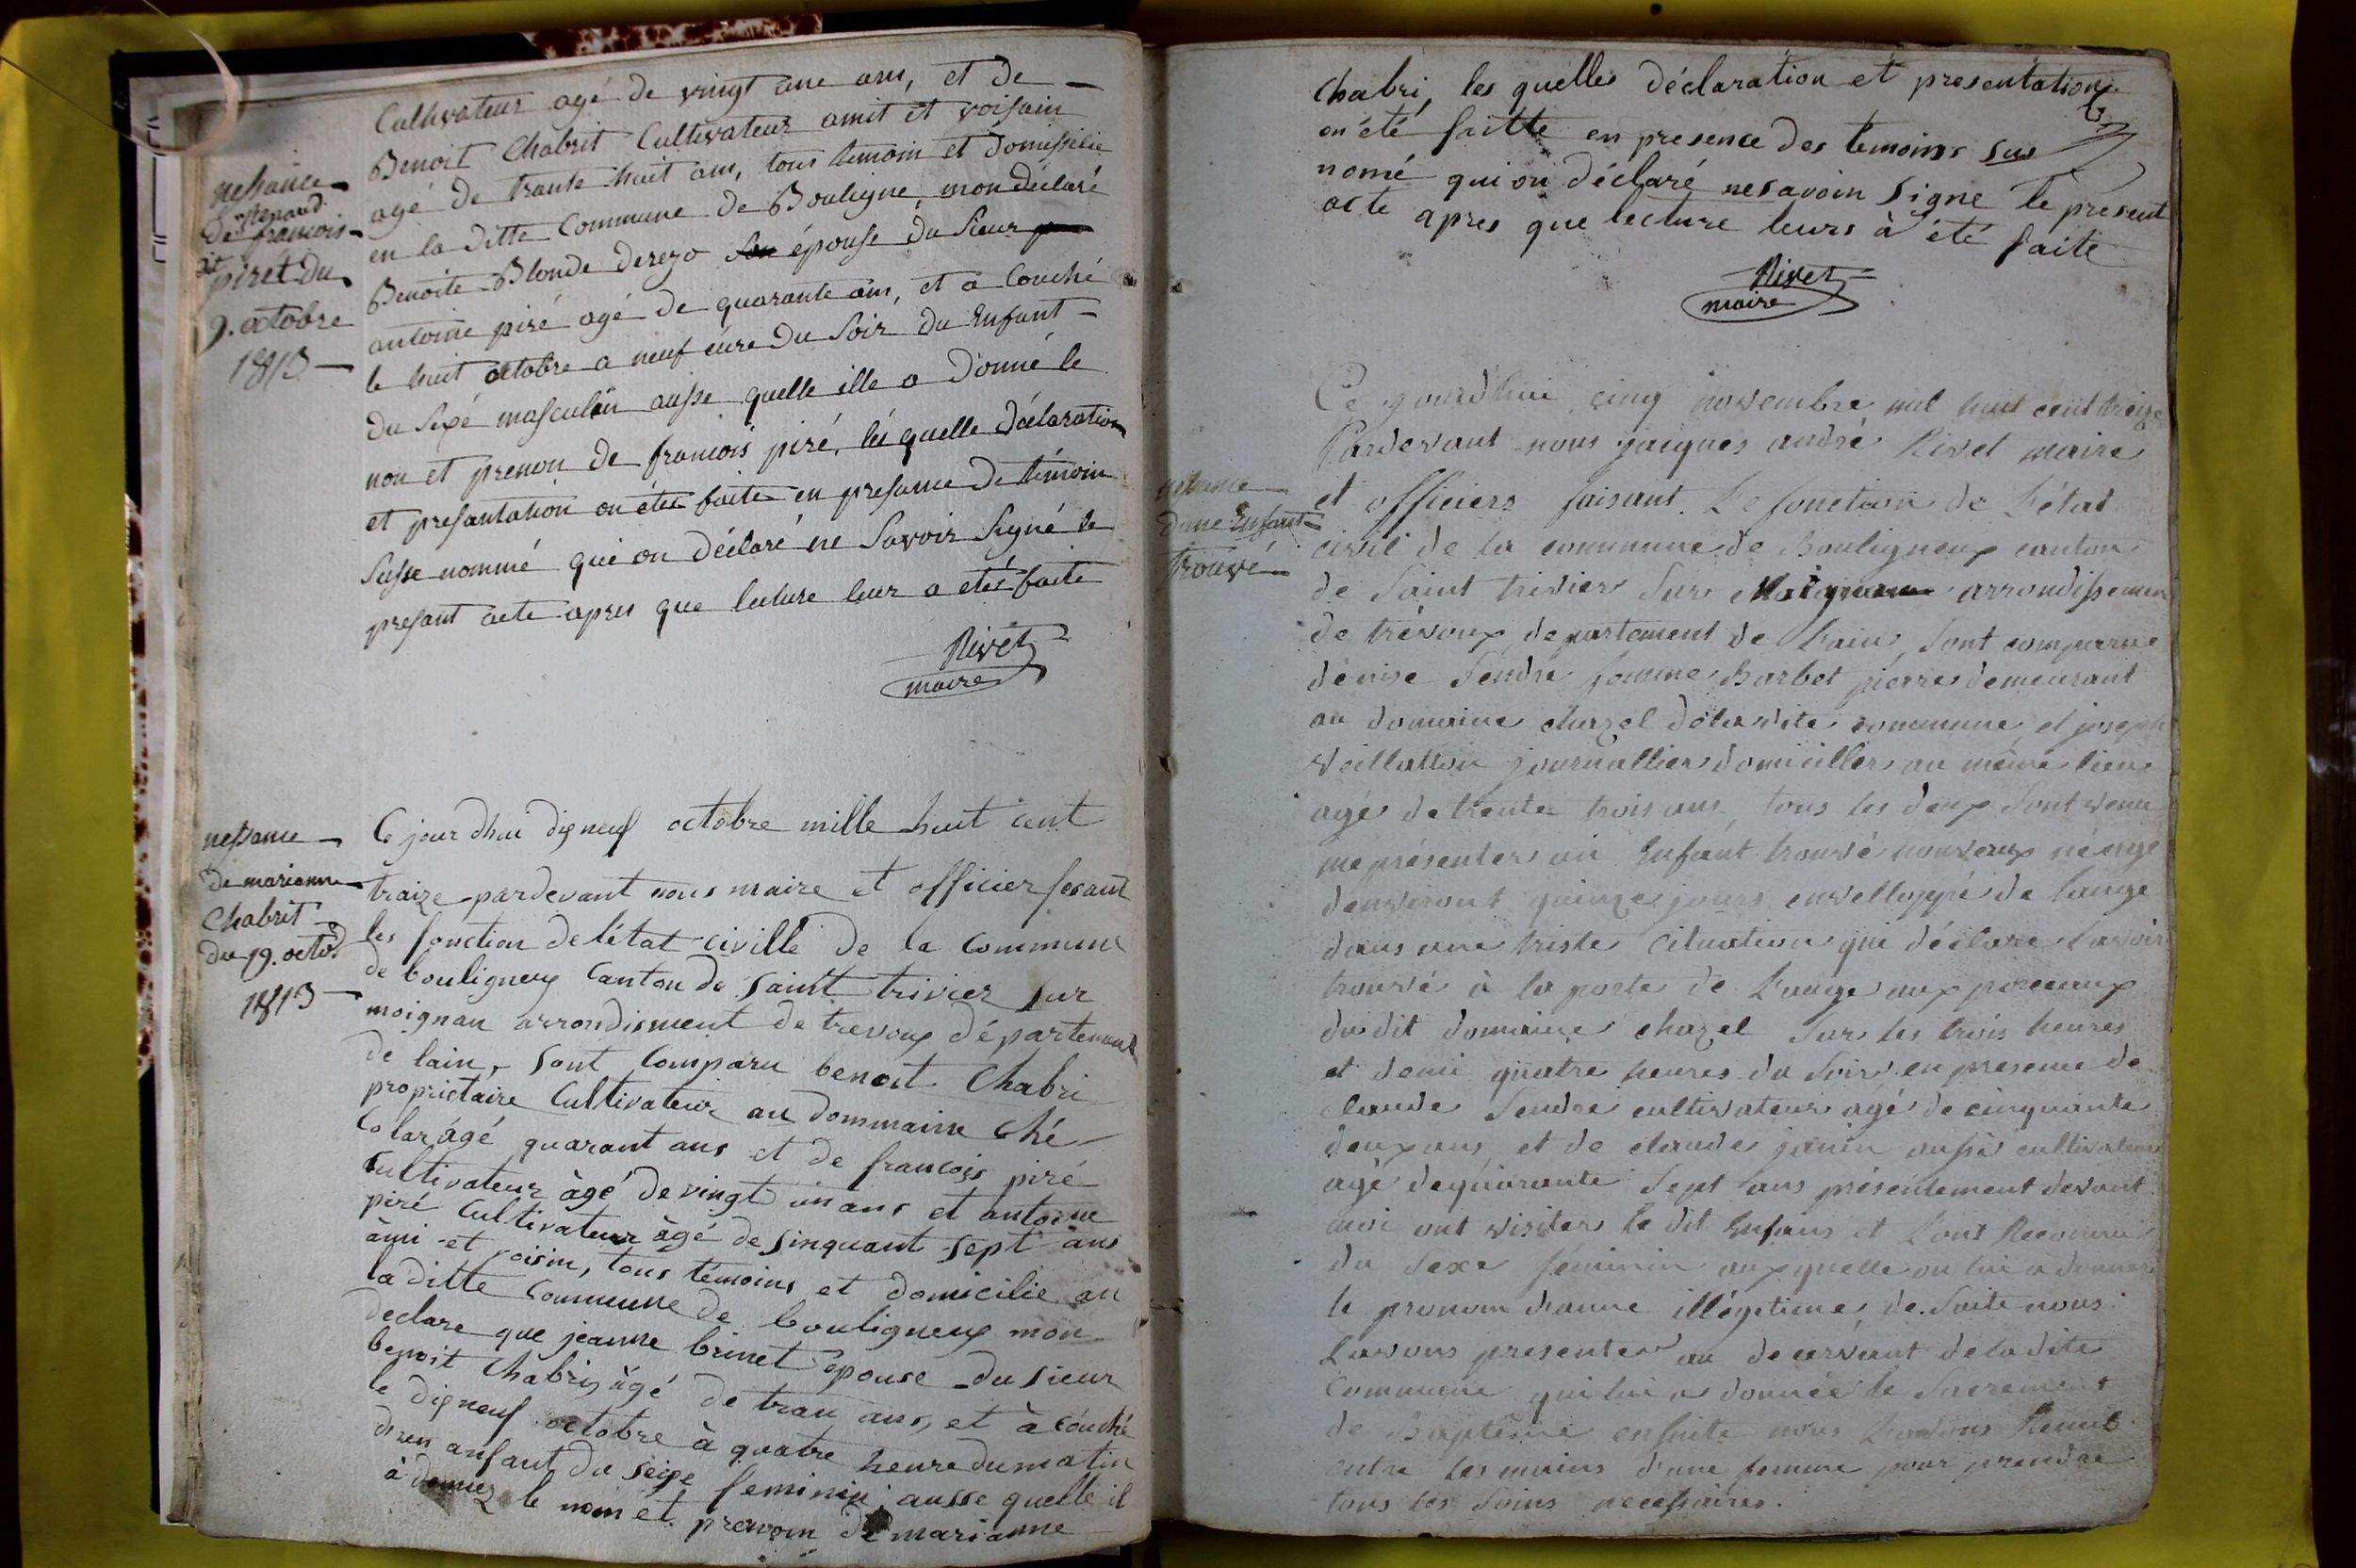 Cultivateur agé de vingt une ans, et de
Benoit Chabrit Cultivateur amit et voisain
agé de trante huit ans, tous temoin et domissilie
en la ditte Commune de Bouligne, mon déclaré
Benoite Blonde derezo son épouse du Sieur
antoine piré agé de quarante ans, et a Couché
le huit octobre a neuf eure du Soir du Enfant
du Sexe masculin ausse quelle ille a donné le
non et prenon de francois piré, les quelle déclaration
et presantation on étés faite en presance de témoin
susse nommé qui on déclaré ne Savoir Signé le
presant acte apres que lecture leur a etés faite
Rivet
maire
nessance
de Renaud
francois
dit
piret du
9. octobre
1813
nessance
de marianne
Chabrit
du 19. octob
1813
Ce jour dhui dix neuf octobre mille huit cent
traize pardevant nous maire et officier fesant
les fonction de létat civille de la Commune
de bouligneux Canton de Saint trivier sur
moignan arrondisment de trevoux département
de lain, sont Comparu benoit Chabri
proprietaire Cultivateur au dommaine Ché
Colar âgé quarant ans et de francois piré
Cultivateur âgé de vingt un ans et antoine
piré Cultivateur âgé de sinquant sept ans
âmi et voisin, tous témoins et domicilié an
la ditte Commune de bouligneux mon
declare que jeanne brinet épouse du sieur
benoit Chabri, âgé de tran ans, et à couché
le dix neuf octobre à quatre heure du matin
dun anfant du seixe feminin ausse quelle il
à donnez le nom et prenom de marianne
Chabri, les quelles déclaration et presentation
on été faitte en presence des temoins sus
nomé qui on déclaré ne savoin signe le present
acte apres que lecture leurs à été faite
Rivet
maire
nessance
dune Enfant
trouvé
Ce jourdhui cinq novembre mil huit cent treize
Pardevant nous jacques andré Rivet maire
et officiers faisant le fonction de l'état
civil de la commune de Bouligneux canton
de Saint trivier Sur Moignans arrondissemen
de trévoux département de Lain, Sont comparue
dénise Sendre femme Barbet pierre demeurant
au domaine chazel de ladite commune et joseph
veillatton journallier domiciller au même lieu
agé de trente trois ans tous les deux Sont venu
me présenter un Enfant trouvé nouveaux né age
denviront quinze jours envelloppé de lange
dans une triste cituation qui déclare Lavoir
trouvé à la porte de Lauge aux porceaux
du dit domaine chazel Sur les trois heures
et demi quatre heures du Soir en presence de
claude Sendre cultivateur agé de cinquante
deux ans et de claude janin aussi cultivateur
agé de quarante Sept ans présentement devant
moi ont visiter le dit Enfans et L'ont Reconnu
du Sexe féminin auxquelle on lui a donner
le pronom dianne illégitime, de Suite nous
Lavons presenter au decervant de la dite
Commune qui lui a donnée le Sacrement
de Baptême ensuite nous Lavons Remit
entre les mains d'une femme pour prendre
tous les Soins necessaires.